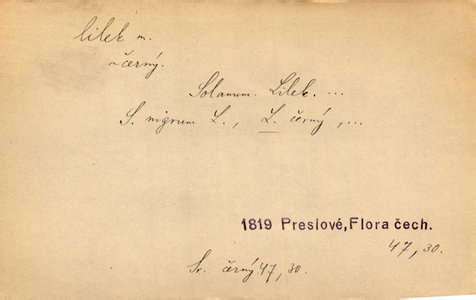 lilek m.
~černý.
Solanum. Lilek. ...
S. nigrum L., L. černý, ...
1819 Preslové, Flora čech.
47, 30.
Sr. černý 47, 30.